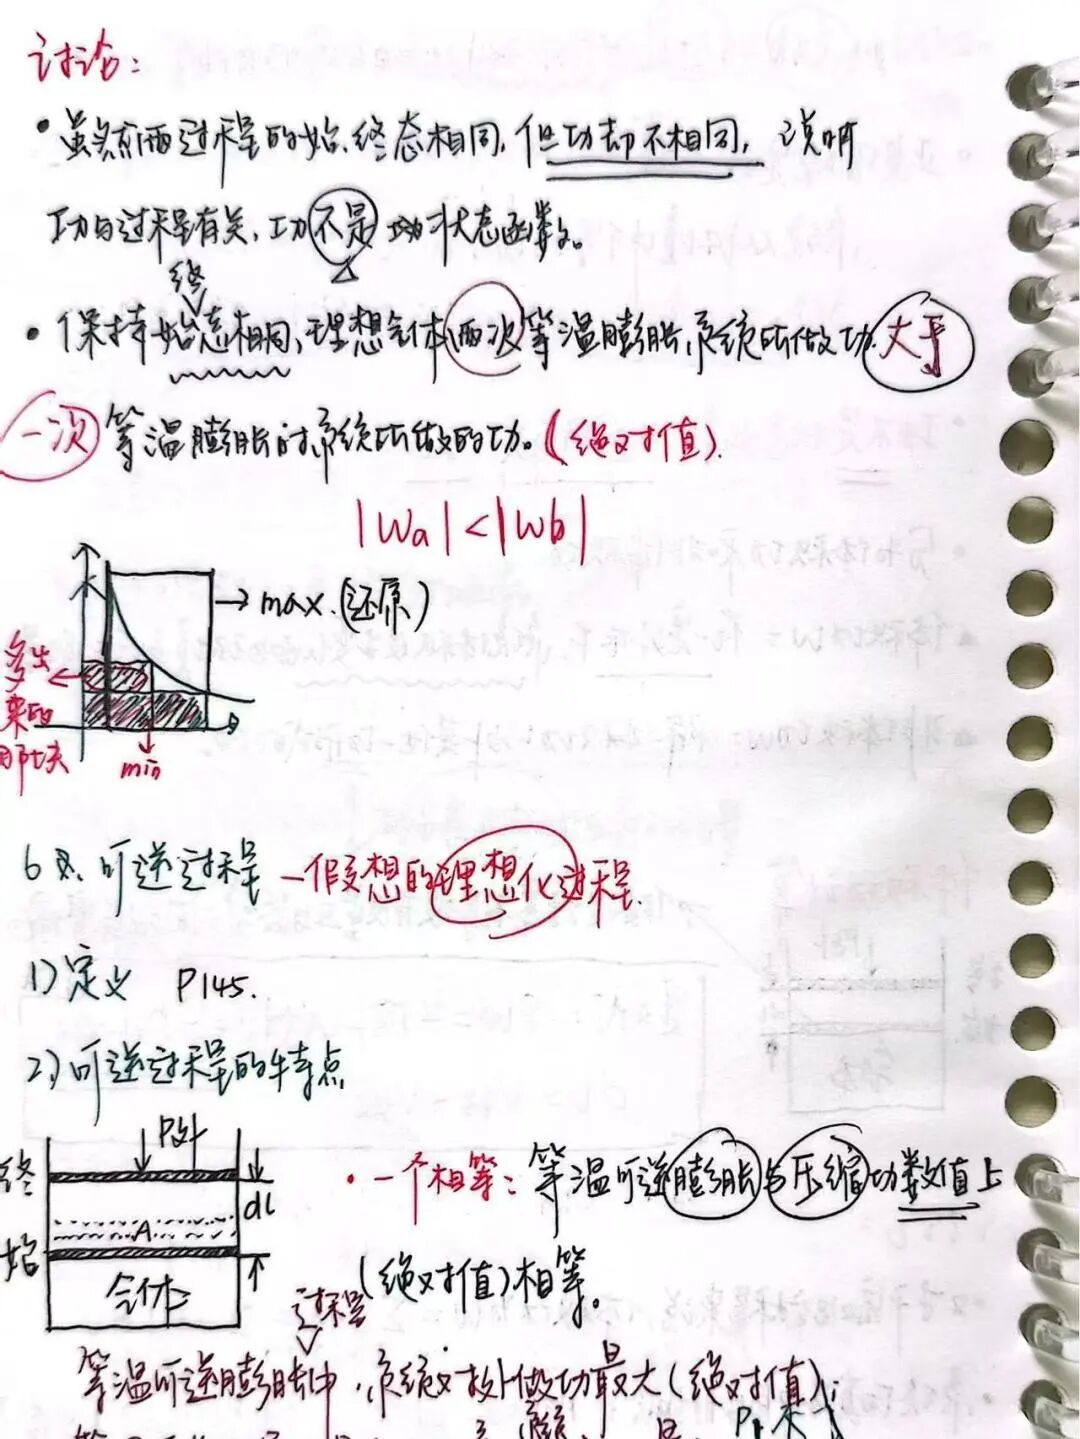 讨论：
• 虽然两过程的始、终态相同，但功却不相同，说明
功与过程有关，功不是状态函数。
终
• 保持始态相同，理想气体两次等温膨胀，系统所做功大于
一次等温膨胀时系统所做的功。(绝对值).
|Wa|<|Wb|
→max.(还原)
多出
来的
那块
min
6. 可逆过程—假想的理想化过程.
1)定义 P145.
2)可逆过程的特点
P外
终
dl
A
始
气体
• 一个相等：等温可逆膨胀与压缩功数值上
(绝对值)相等。
过程
等温可逆膨胀中，系统对外做功最大(绝对值)；